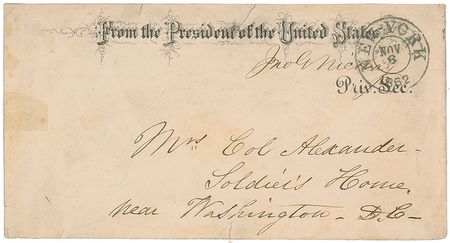 From the President of the United States.
NEW-YORK
NOV
6
1862
Jno. G. Nicolay
Priv. Sec.
Mrs Col Alexander-
Soldier's Home,
near Washington - D.C-